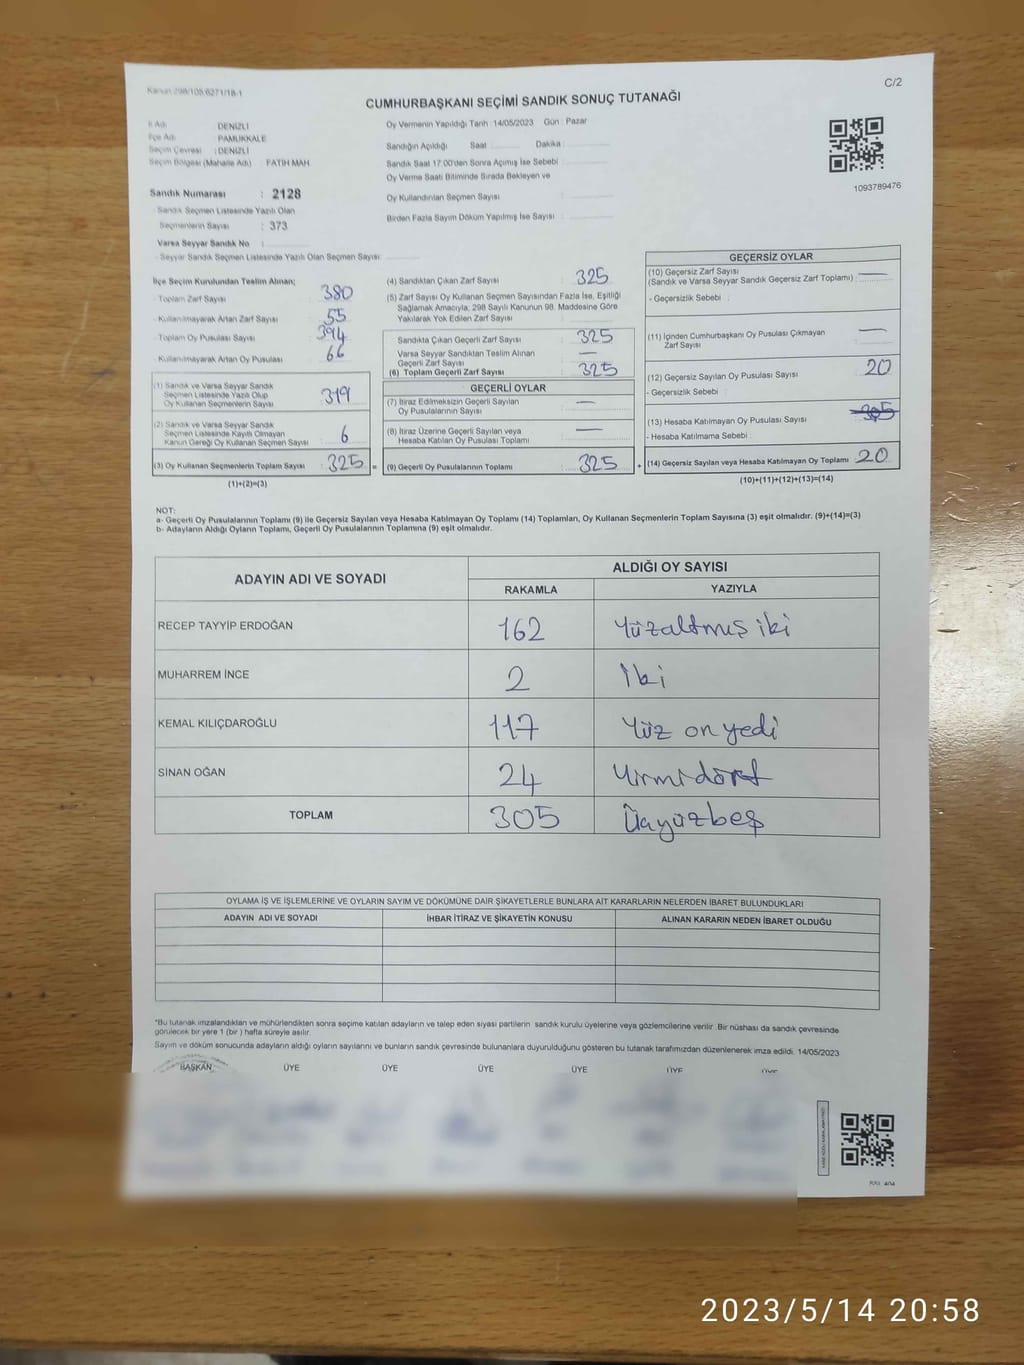 Kanun 298/105,6271/18-1
C/2
CUMHURBAŞKANI SEÇİMİ SANDIK SONUÇ TUTANAĞI
İl Adı : DENİZLİ
İlçe Adı : PAMUKKALE
Seçim Çevresi : DENİZLİ
Seçim Bölgesi (Mahalle Adı) : FATİH MAH
Sandık Numarası : 2128
Sandık Seçmen Listesinde Yazılı Olan
Seçmenlerin Sayısı : 373
Varsa Seyyar Sandık No :
- Seyyar Sandık Seçmen Listesinde Yazılı Olan Seçmen Sayısı:
Oy Vermenin Yapıldığı Tarih :14/05/2023 Gün : Pazar
Sandığın Açıldığı Saat : Dakika :
Sandık Saat 17:00'den Sonra Açılmış İse Sebebi :
Oy Verme Saati Bitiminde Sırada Bekleyen ve
Oy Kullandırılan Seçmen Sayısı :
Birden Fazla Sayım Döküm Yapılmış İse Sayısı :
1093789476
İlçe Seçim Kurulundan Teslim Alınan;
- Toplam Zarf Sayısı : 380
- Kullanılmayarak Artan Zarf Sayısı : 55
- Toplam Oy Pusulası Sayısı : 394
- Kullanılmayarak Artan Oy Pusulası : 66
(1) Sandık ve Varsa Seyyar Sandık
Seçmen Listesinde Yazılı Olup
Oy Kullanan Seçmenlerin Sayısı : 319
(2) Sandık ve Varsa Seyyar Sandık
Seçmen Listesinde Kayıtlı Olmayan
Kanun Gereği Oy Kullanan Seçmen Sayısı : 6
(3) Oy Kullanan Seçmenlerin Toplam Sayısı : 325 =
(1)+(2)=(3)
(4) Sandıktan Çıkan Zarf Sayısı : 325
(5) Zarf Sayısı Oy Kullanan Seçmen Sayısından Fazla İse, Eşitliği
Sağlamak Amacıyla; 298 Sayılı Kanunun 98. Maddesine Göre
Yakılarak Yok Edilen Zarf Sayısı :
Sandıkta Çıkan Geçerli Zarf Sayısı : 325
Varsa Seyyar Sandıktan Teslim Alınan
Geçerli Zarf Sayısı : —
(6) Toplam Geçerli Zarf Sayısı : 325
GEÇERLİ OYLAR
(7) İtiraz Edilmeksizin Geçerli Sayılan
Oy Pusulalarının Sayısı : —
(8) İtiraz Üzerine Geçerli Sayılan veya
Hesaba Katılan Oy Pusulası Toplamı : —
(9) Geçerli Oy Pusulalarının Toplamı : 325 +
GEÇERSİZ OYLAR
(10) Geçersiz Zarf Sayısı
(Sandık ve Varsa Seyyar Sandık Geçersiz Zarf Toplamı) : —
- Geçersizlik Sebebi :
(11) İçinden Cumhurbaşkanı Oy Pusulası Çıkmayan
Zarf Sayısı : —
(12) Geçersiz Sayılan Oy Pusulası Sayısı : 20
- Geçersizlik Sebebi :
(13) Hesaba Katılmayan Oy Pusulası Sayısı : 305
- Hesaba Katılmama Sebebi :
(14) Geçersiz Sayılan veya Hesaba Katılmayan Oy Toplamı : 20
(10)+(11)+(12)+(13)=(14)
NOT:
a- Geçerli Oy Pusulalarının Toplamı (9) ile Geçersiz Sayılan veya Hesaba Katılmayan Oy Toplamı (14) Toplamları, Oy Kullanan Seçmenlerin Toplam Sayısına (3) eşit olmalıdır. (9)+(14)=(3)
b- Adayların Aldığı Oyların Toplamı, Geçerli Oy Pusulalarının Toplamına (9) eşit olmalıdır.
ADAYIN ADI VE SOYADI
ALDIĞI OY SAYISI
RAKAMLA YAZIYLA
RECEP TAYYİP ERDOĞAN 162 Yüzaltmış iki
MUHARREM İNCE 2 İki
KEMAL KILIÇDAROĞLU 117 Yüz on yedi
SİNAN OĞAN 24 Yirmidört
TOPLAM 305 Üçyüzbeş
OYLAMA İŞ VE İŞLEMLERİNE VE OYLARIN SAYIM VE DÖKÜMÜNE DAİR ŞİKAYETLERLE BUNLARA AİT KARARLARIN NELERDEN İBARET BULUNDUKLARI
ADAYIN ADI VE SOYADI İHBAR İTİRAZ VE ŞİKAYETİN KONUSU ALINAN KARARIN NEDEN İBARET OLDUĞU
*Bu tutanak imzalandıktan ve mühürlendikten sonra seçime katılan adayların ve talep eden siyasi partilerin sandık kurulu üyelerine veya gözlemcilerine verilir. Bir nüshası da sandık çevresinde
görülecek bir yere 1 (bir ) hafta süreyle asılır.
Sayım ve döküm sonucunda adayların aldığı oyların sayılarını ve bunların sandık çevresinde bulunanlara duyurulduğunu gösteren bu tutanak tarafımızdan düzenlenerek imza edildi. 14/05/2023
BAŞKAN ÜYE ÜYE ÜYE ÜYE ÜYE ÜYE
2023/5/14 20:58